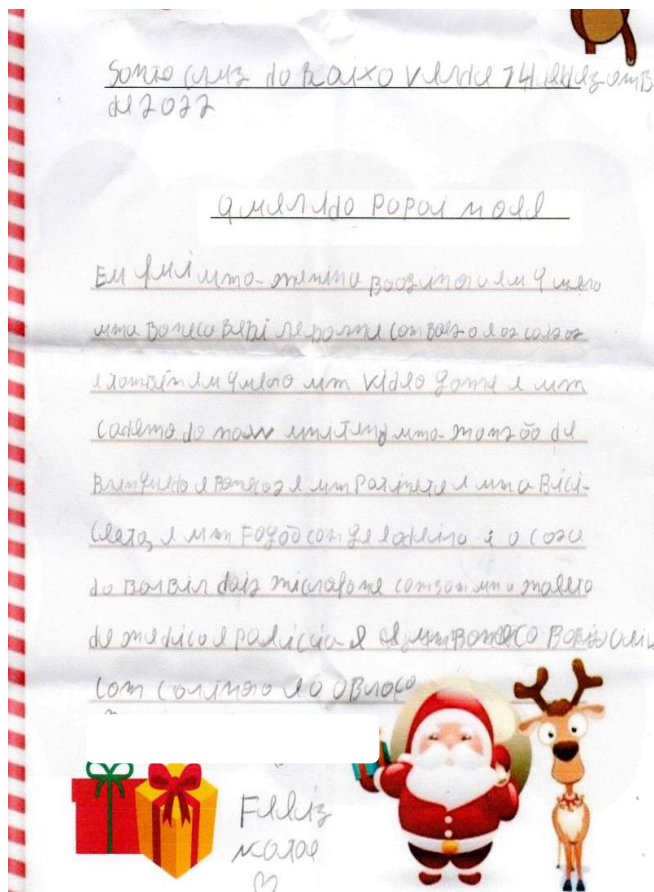 Santo Cruz do Baixo Verde 14 de dezemB
de 2022
querido Papai noel
Eu fui uma menina Boazinha eu quero
uma Boneca Bebi reborne com Bolso e as coisas
e também eu quero um video game e um
caderno do now uma mansão de
Brinquedo e Bonecas e um Patinete e uma Bici-
cleta e um Fogão com geladeira e a casa
da BarBir dois microfone com som uma maleta
de medico e policcia e um Boneca
com carinho e o aBraço
Feliz
natal